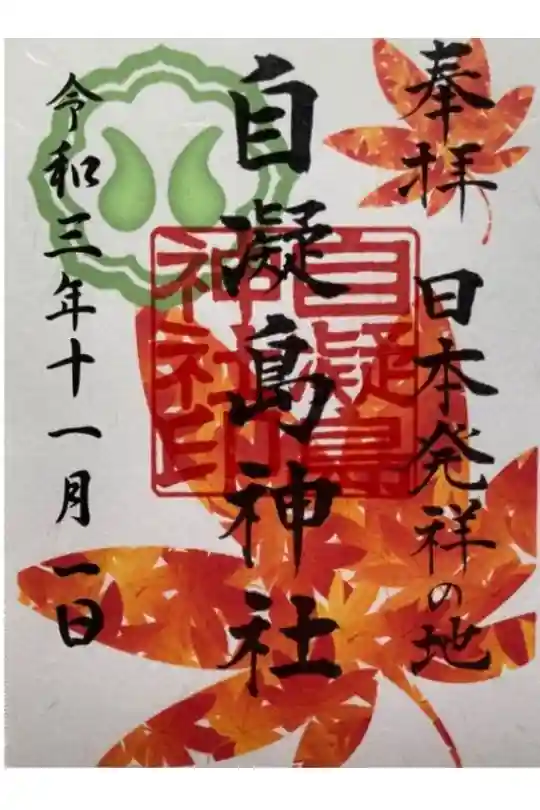 奉拝 日本発祥の地
自凝島神社
自凝島
神社印
令和三年十一月一日